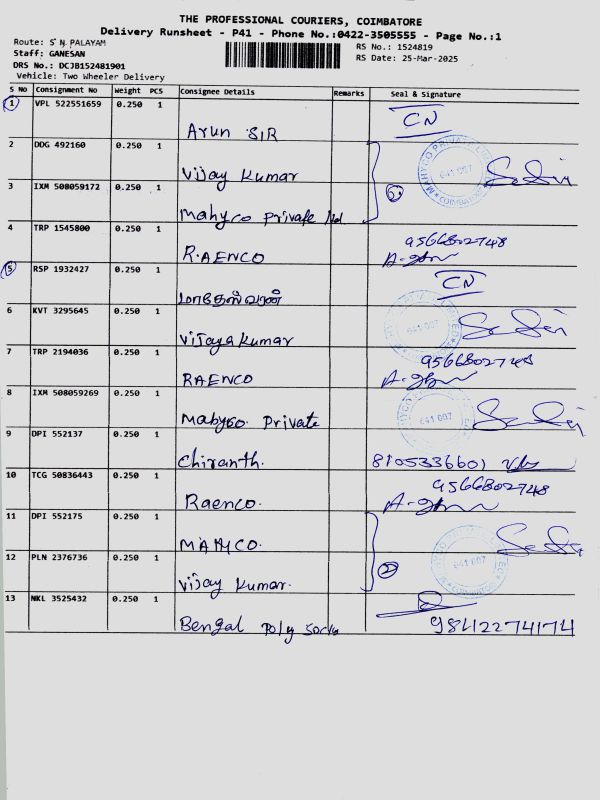 THE PROFESSIONAL COURIERS, COIMBATORE
Delivery Runsheet - P41 - Phone No.:0422-3505555 - Page No.:1
Route: S N PALAYAM
RS No.: 1524819
Staff: GANESAN
RS Date: 25-Mar-2025
DRS No.: DCJB152481901
Vehicle: Two Wheeler Delivery
S No Consignment No Weight PCS Consignee Details Remarks Seal & Signature
1 VPL 522551659 0.250 1
Arun SIR CN
2 DDG 492160 0.250 1
Vijay Kumar
MAHYCO PRIVATE LIMITED
641 007
COIMBATORE
3 IXM 508059172 0.250 1
Mahyco Private Ltd
4 TRP 1545800 0.250 1
R.AENCO 9566802748
5 RSP 1932427 0.250 1
மாதேஸ்வரன் CN
6 KVT 3295645 0.250 1
Vijaya Kumar
641 007
7 TRP 2194036 0.250 1
RAENCO 9566802748
8 IXM 508059269 0.250 1
Mahyco. Private
641 007
9 DPI 552137 0.250 1
Chiranth. 8105336601
10 TCG 50836443 0.250 1
Raenco. 9566802748
11 DPI 552175 0.250 1
MAHYCO.
641 007
12 PLN 2376736 0.250 1
Vijay Kumar. 2
13 NKL 3525432 0.250 1
Bengal Poly 9842274174